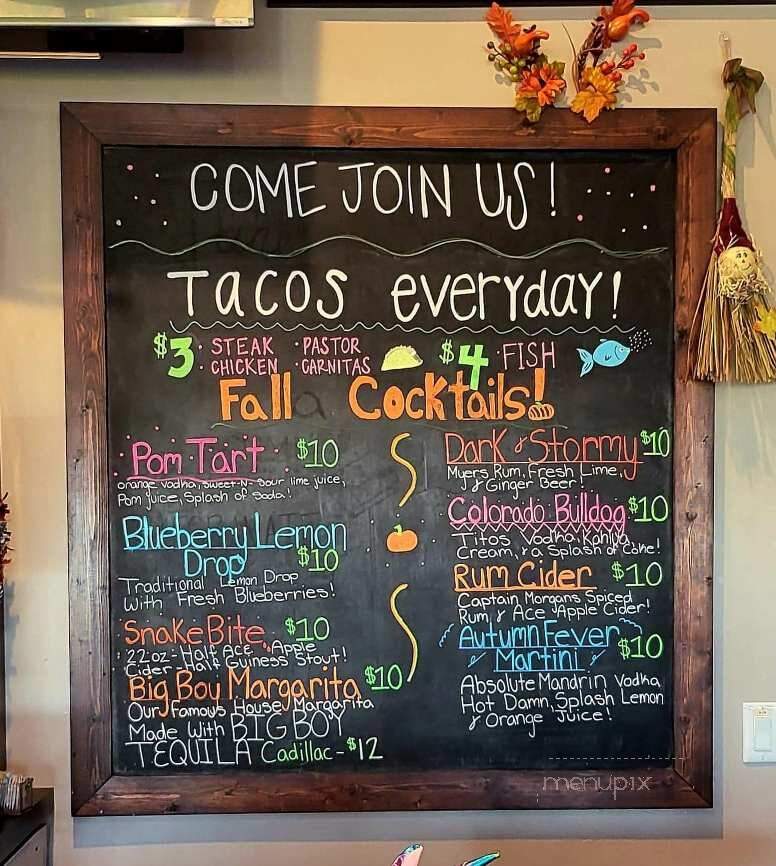 COME JOIN US!
TACOS everyday!
$3 · STEAK · PASTOR $4 · FISH
· CHICKEN · CARNITAS
Fall Cocktails!
Pom Tart $10
orange vodka, sweet-n-sour lime juice,
Pom juice, Splash of Soda!
Blueberry Lemon
Drop $10
Traditional Lemon Drop
With Fresh Blueberries!
SnakeBite $10
22oz-Half Ace Apple
Cider-Half Guiness Stout!
Big Boy Margarita $10
Our Famous House Margarita
Made With BIG BOY
TEQUILA Cadillac-$12
Dark & Stormy $10
Myers Rum, Fresh Lime,
& Ginger Beer!
Colorado Bulldog $10
Titos Vodka, Kahlua
Cream, & a Splash of Coke!
Rum Cider $10
Captain Morgans Spiced
Rum & Ace Apple Cider!
Autumn Fever
Martini $10
Absolute Mandrin Vodka
Hot Damn, Splash Lemon
& Orange Juice!
menupix